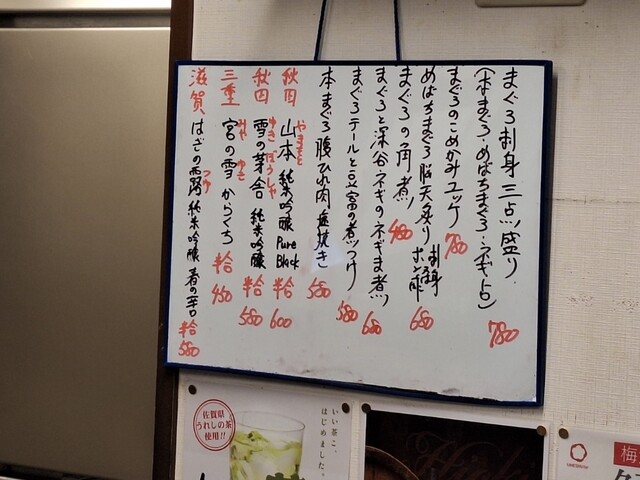 まぐろ刺身三点盛り
(本まぐろ・めばちまぐろ・ネギトロ) 780
まぐろのこめかみユッケ 780
めばちまぐろ脳天炙り 刺身 ポン酢 680
まぐろの角煮 480
まぐろと深谷ネギのネギま煮 680
まぐろテールと豆富の煮つけ 580
本まぐろ腹ひれ肉塩焼き 580
秋田 山本 やまもと 純米吟醸 Pure Black 半合 600
秋田 雪の茅舎 ゆき ぼうしゃ 純米吟醸 半合 580
三重 宮の雪 みや ゆき からくち 半合 450
滋賀 はぎの露 つゆ 純米吟醸 半合 580
佐賀県
うれしの茶
使用!!
いい茶こ、
はじめました。
梅